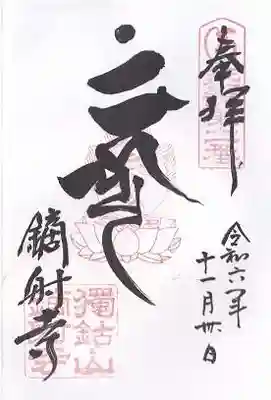 奉拝
令和六年
十一月卅日
鏑射寺
獨鈷山
鏑射寺